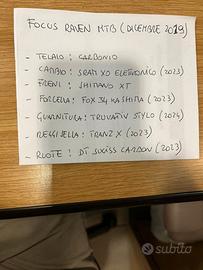 FOCUS RAVEN MTB (DICEMBRE 2019)
- TELAIO : CARBONIO
- CAMBIO : SRAM XO ELETTRONICO (2023)
- FRENI : SHIMANO XT
- FORCELLA : FOX 34 KASHIMA (2023)
- GUARNITURA : TRUVATIV STYLO (2024)
- REGGISELLA : TRANZ X (2023)
- RUOTE : DT SWISS CARBON (2023)
subito